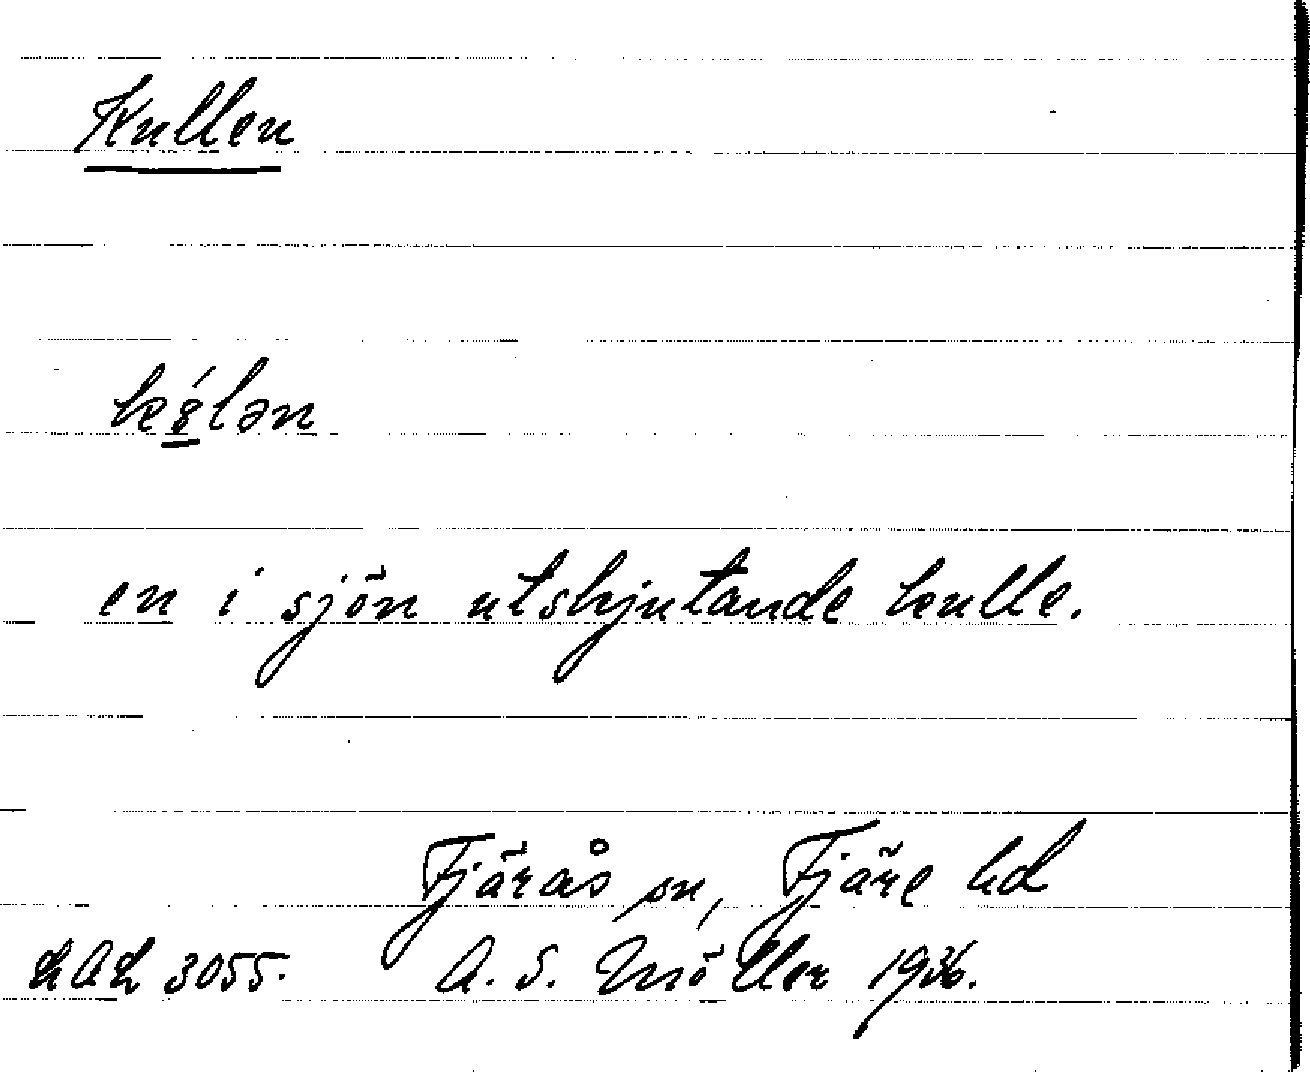 Kullen
en i sjön utskjutande kulle.
Fjärås sn, Fjäre hd
LAL 3055. A. S. Möller 1936.